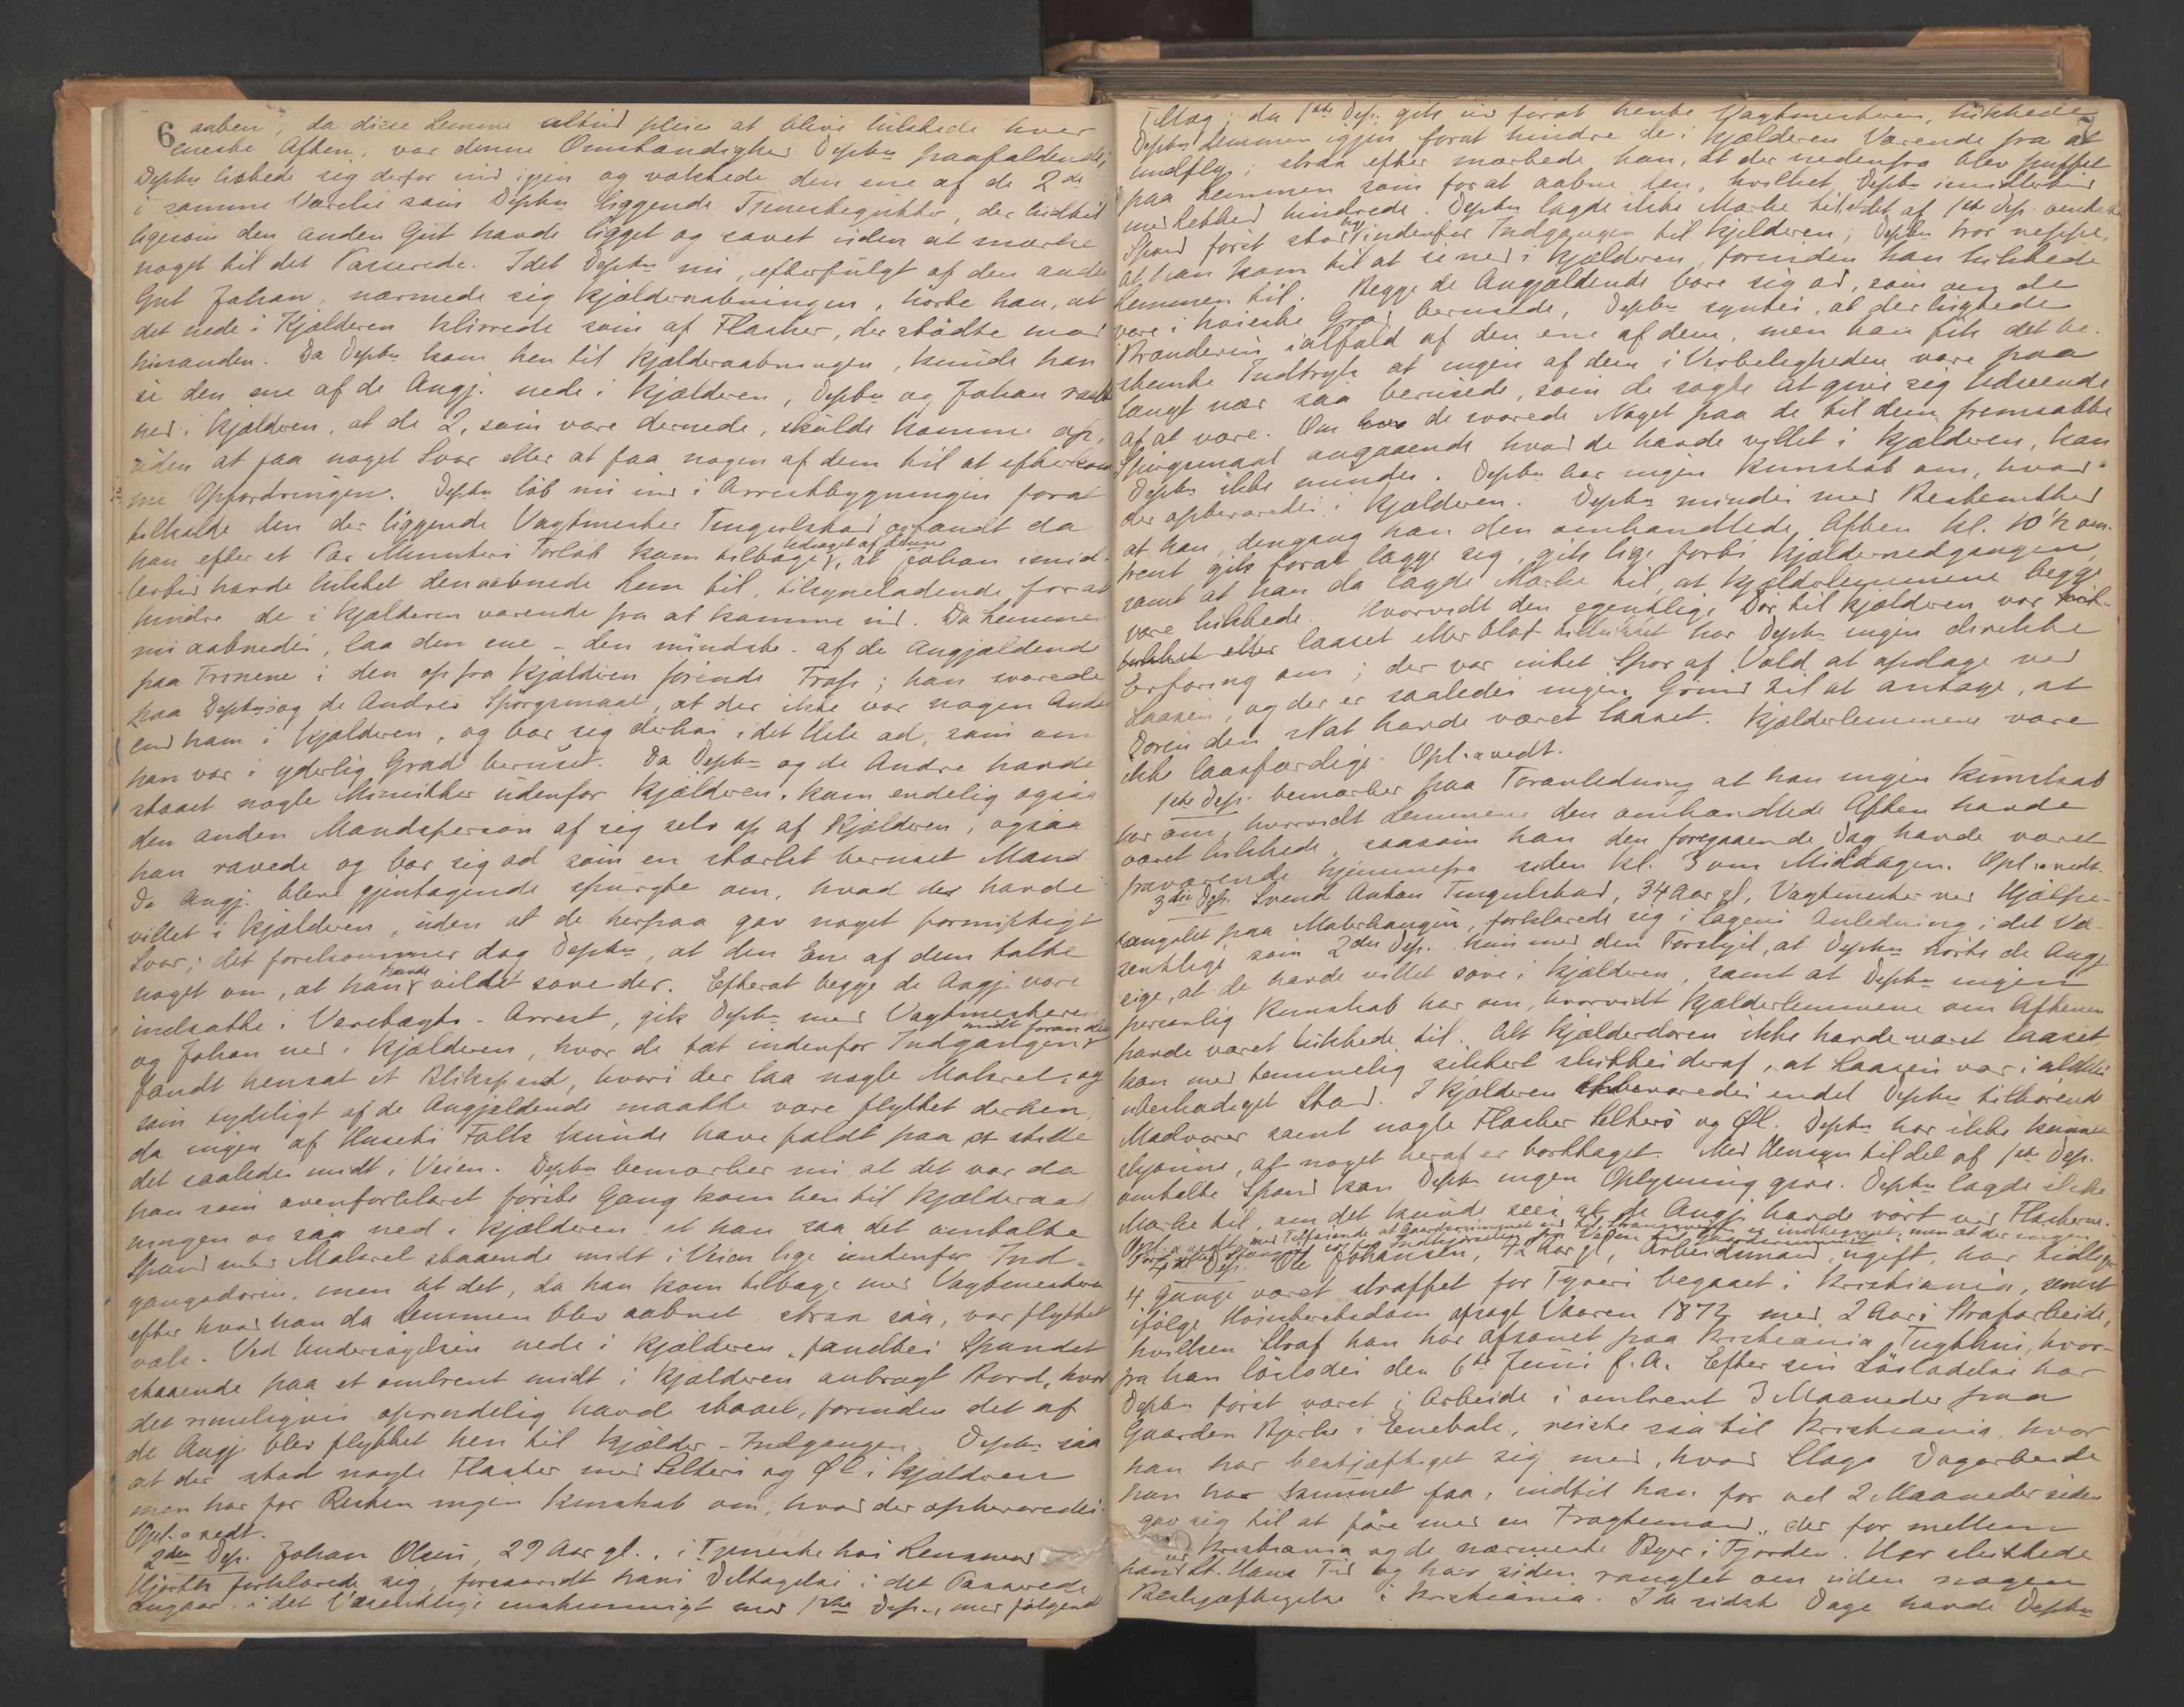 6 aaben; da disse Lemme altid pleie at blive lukkede hver
eneste Aften, var denne Omstændighed Deptn paafaldende;
Deptn listede sig derfor ind igjen og vækkede den ene af de 2de
i samme Værelse som Deptn liggende Tjenestegutter, der hidtil
ligesom den anden Gut havde ligget og sovet uden at mærke
noget til det Passerede. Idet Deptn nu, efterfulgt af den anden
Gut Johan, nærmede sig Kjælderaabningen, hørte han, at
det nede i Kjælderen klirrede som af Flasker, der stødte mod
hinanden. Da Deptn kom hen til Kjælderaabningen, kunde han
se den ene af de Angj. nede i Kjælderen; Deptn og Johan raabte
ned i Kjælderen, at de 2, som vare dernede, skulde komme op,
uden at faa noget Svar eller at faa nogen af dem til at efterkom
me Opfordringen. Deptn løb nu ind i Arrestbygningen forat
tilkalde den der liggende Vagtmester Tingulstad og fandt da
han efter et Par Minutters Forløb kom tilbage ledsaget af denne, at Johan imid-
lertid havde lukket den aabnede Lem til, tilsyneladende forat
hindre de i Kjælderen værende fra at komme ud. Da Lemmen
nu aabnedes, laa den ene – den mindste – af de Angjældende
paa Trinene i den op fra Kjælderen førende Trap; han svarede
paa Deptns og de Andres Spørgsmaal, at der ikke var nogen Anden
end ham i Kjælderen, og bar sig derhos i det Hele ad, som om
han var i yderlig Grad beruset. Da Deptn og de Andre havde
staaet nogle Minutter udenfor Kjælderen, kom endelig ogsaa
den anden Mandsperson af sig selv op af Kjælderen, ogsaa
han ravede og bar sig ad som en stærkt beruset Mand
De Angj. bleve gjentagende spurgte om, hvad de havde
villet i Kjælderen, uden at de herpaa gav noget fornuftigt
Svar; det forekommer dog Deptn, at den Ene af dem talte
noget om, at han havde villet sove der. Efterat begge de Angj. vare
indsatte i Varetægts-Arrest, gik Deptn med Vagtmesteren
og Johan ned i Kjælderen, hvor de tæt indenfor Indgangen midt foran den
fandt hensat et Blikspand, hvori der laa nogle Makrel, og
som tydeligt af de Angjældende maatte være flyttet derhen,
da ingen af Husets Folk kunde have faldt paa at stille
det saaledes midt i Veien. Deptn bemærker nu at det var da
han som ovenforklaret første Gang kom hen til Kjælderaab
ningen og saa ned i Kjælderen at han saa det omtalte
Spand med Makrel staaende midt i Veien lige indenfor Ind-
gangsdøren, men at det, da han kom tilbage med Vagtmesteren
efter hvad han da Lemmen blev aabnet strax saa, var flyttet
væk. Ved Undersøgelsen nede i Kjælderen, fandtes Spandet
staaende paa et omtrent midt i Kjælderen anbragt Bord, hvor
det rimeligvis oprindelig havde staaet, forinden det af
de Angj. blev flyttet hen til Kjælder-Indgangen. Deptn saa
at der stod nogle Flasker med Selters og Øl i Kjælderen
men har for Resten ingen Kundskab om, hvad der opbevaredes.
Opl. o vedt.
2den Dep. Johan Olsen, 29 Aar gl., i Tjeneste hos Lensmand
Hjorth forklarede sig, forsaavidt hans Deltagelse i det Passerede
angaar, i det Væsentlige enstemmigt med 1ste Dep., med følgende
Tillæg: da 1ste Dep. gik ind forat hente Vagtmesteren, lukkede
Deptn Lemmen igjen forat hindre de i Kjælderen Værende fra at
undfly; strax efter mærkede han, at der nedenfra blev puffet
paa Lemmen som forat aabne den, hvilket Deptn imidlertid
med Lethed hindrede. Deptn lagde ikke Mærke til, at det af 1ste Dep. omtalte
Spand først stod indenfor Indgangen til Kjælderen; Deptn tror neppe,
at han kom til at se ned i Kjælderen, forinden han lukkede
Lemmen til. Begge de Angjældende bare sig ad, som om de
vare i høieste Grad berusede, Deptn syntes, at der lugtede
Brændevin ialfald af den ene af dem, men han fik det be-
stemte Indtryk at ingen af dem i Virkeligheden vare paa
langt nær saa berusede, som de søgte at give sig Udseende
af at være. Om de svarede Noget paa de til dem fremsatte
Spørgsmaal angaaende hvad de havde villet i Kjælderen, kan
Deptn ikke mindes. Deptn har ingen Kundskab om, hvad
der opbevaredes i Kjælderen. Deptn mindes med Bestemthed
at han, dengang han den omhandlede Aften Kl. 10 ½ om-
trent gik forat lægge sig, gik lige forbi Kjældernedgangen,
samt at han da lagde Mærke til, at Kjælderlemmene begge
vare lukkede. Hvorvidt den egentlige Dør til Kjælderen var
lukket eller laaset eller blot tillukket har Deptn ingen direkte
Erfaring om; der var intet Spor af Vold at opdage ved
Laasen, og der er saaledes ingen Grund til at antage, at
Døren den Nat havde været laaset. Kjælderlemmene vare
ikke laasfærdige. Opl. o vedt.
1ste Dep. bemærker paa Foranledning at han ingen Kundskab
har om, hvorvidt Lemmene den omhandlede Aften havde
været lukkede, saasom han den foregaaende Dag havde været
fraværende hjemmefra siden Kl. 3 om Middagen. Opl. o vedt.
3die Dep. Svend Anton Tingulstad, 34 Aar gl, Vagtmester ved Hjælpe-
fængslet paa Materhaugen, forklarede sig i Sagens Anledning i det Væ-
sentlige som 2den Dep. kun med den Forskjel, at Deptn hørte de Angj.
sige, at de havde villet sove i Kjælderen, samt at Deptn ingen
personlig Kundskab har om, hvorvidt Kjælderlemmene om Aftenen
havde været lukkede til. At Kjælderdøren ikke havde været laaset
kan med temmelig sikkert sluttes deraf, at Laasen var i aldeles
ubeskadiget Stand. I Kjælderen opbevaredes endel Deptn tilhørende
Madvarer samt nogle Flasker Selters og Øl. Deptn har ikke kunnet
skjønne, at noget heraf er borttaget. Med Hensyn til det af 1ste Dep.
omtalte Spand kan Deptn ingen Oplysning give. Deptn lagde ikke
Mærke til, om det kunde sees at de Angj. havde rørt ved Flaskerne.
Opl. o vedt. med Tilføiende at Gaardsrummet er indhegnet, men at der ingen
4de Dep. Ole Johansen, 42 Aar gl, Arbeidsmand, ugift, har tidligere
4 Gange været straffet for Tyveri begaaet i Kristiania, senest
ifølge Høiesteretsdom afsagt Vaaren 1872 med 2 Aars Strafarbeide,
hvilken Straf han har afsonet paa Kristiania Tugthus, hvor-
fra han løslodes den 6te Juni f.A. Efter sin Løsladelse har
Deptn først været i Arbeide i omtrent 3 Maaneder paa
Gaarden Bjerke i Enebak, reiste saa til Kristiania, hvor
han har beskjæftiget sig med, hvad Slags Dagarbeide
han har kunnet faa, indtil han for vel 2 Maaneder siden
gav sig til at fare med en Fragtemand, der for mellem
Kristiania og de nærmeste Byer i Fjorden. Her sluttede
han ved St. Hans Tid og har siden ranglet om uden nogen
Beskjæftigelse i Kristiania. I de sidste Dage havde Deptn